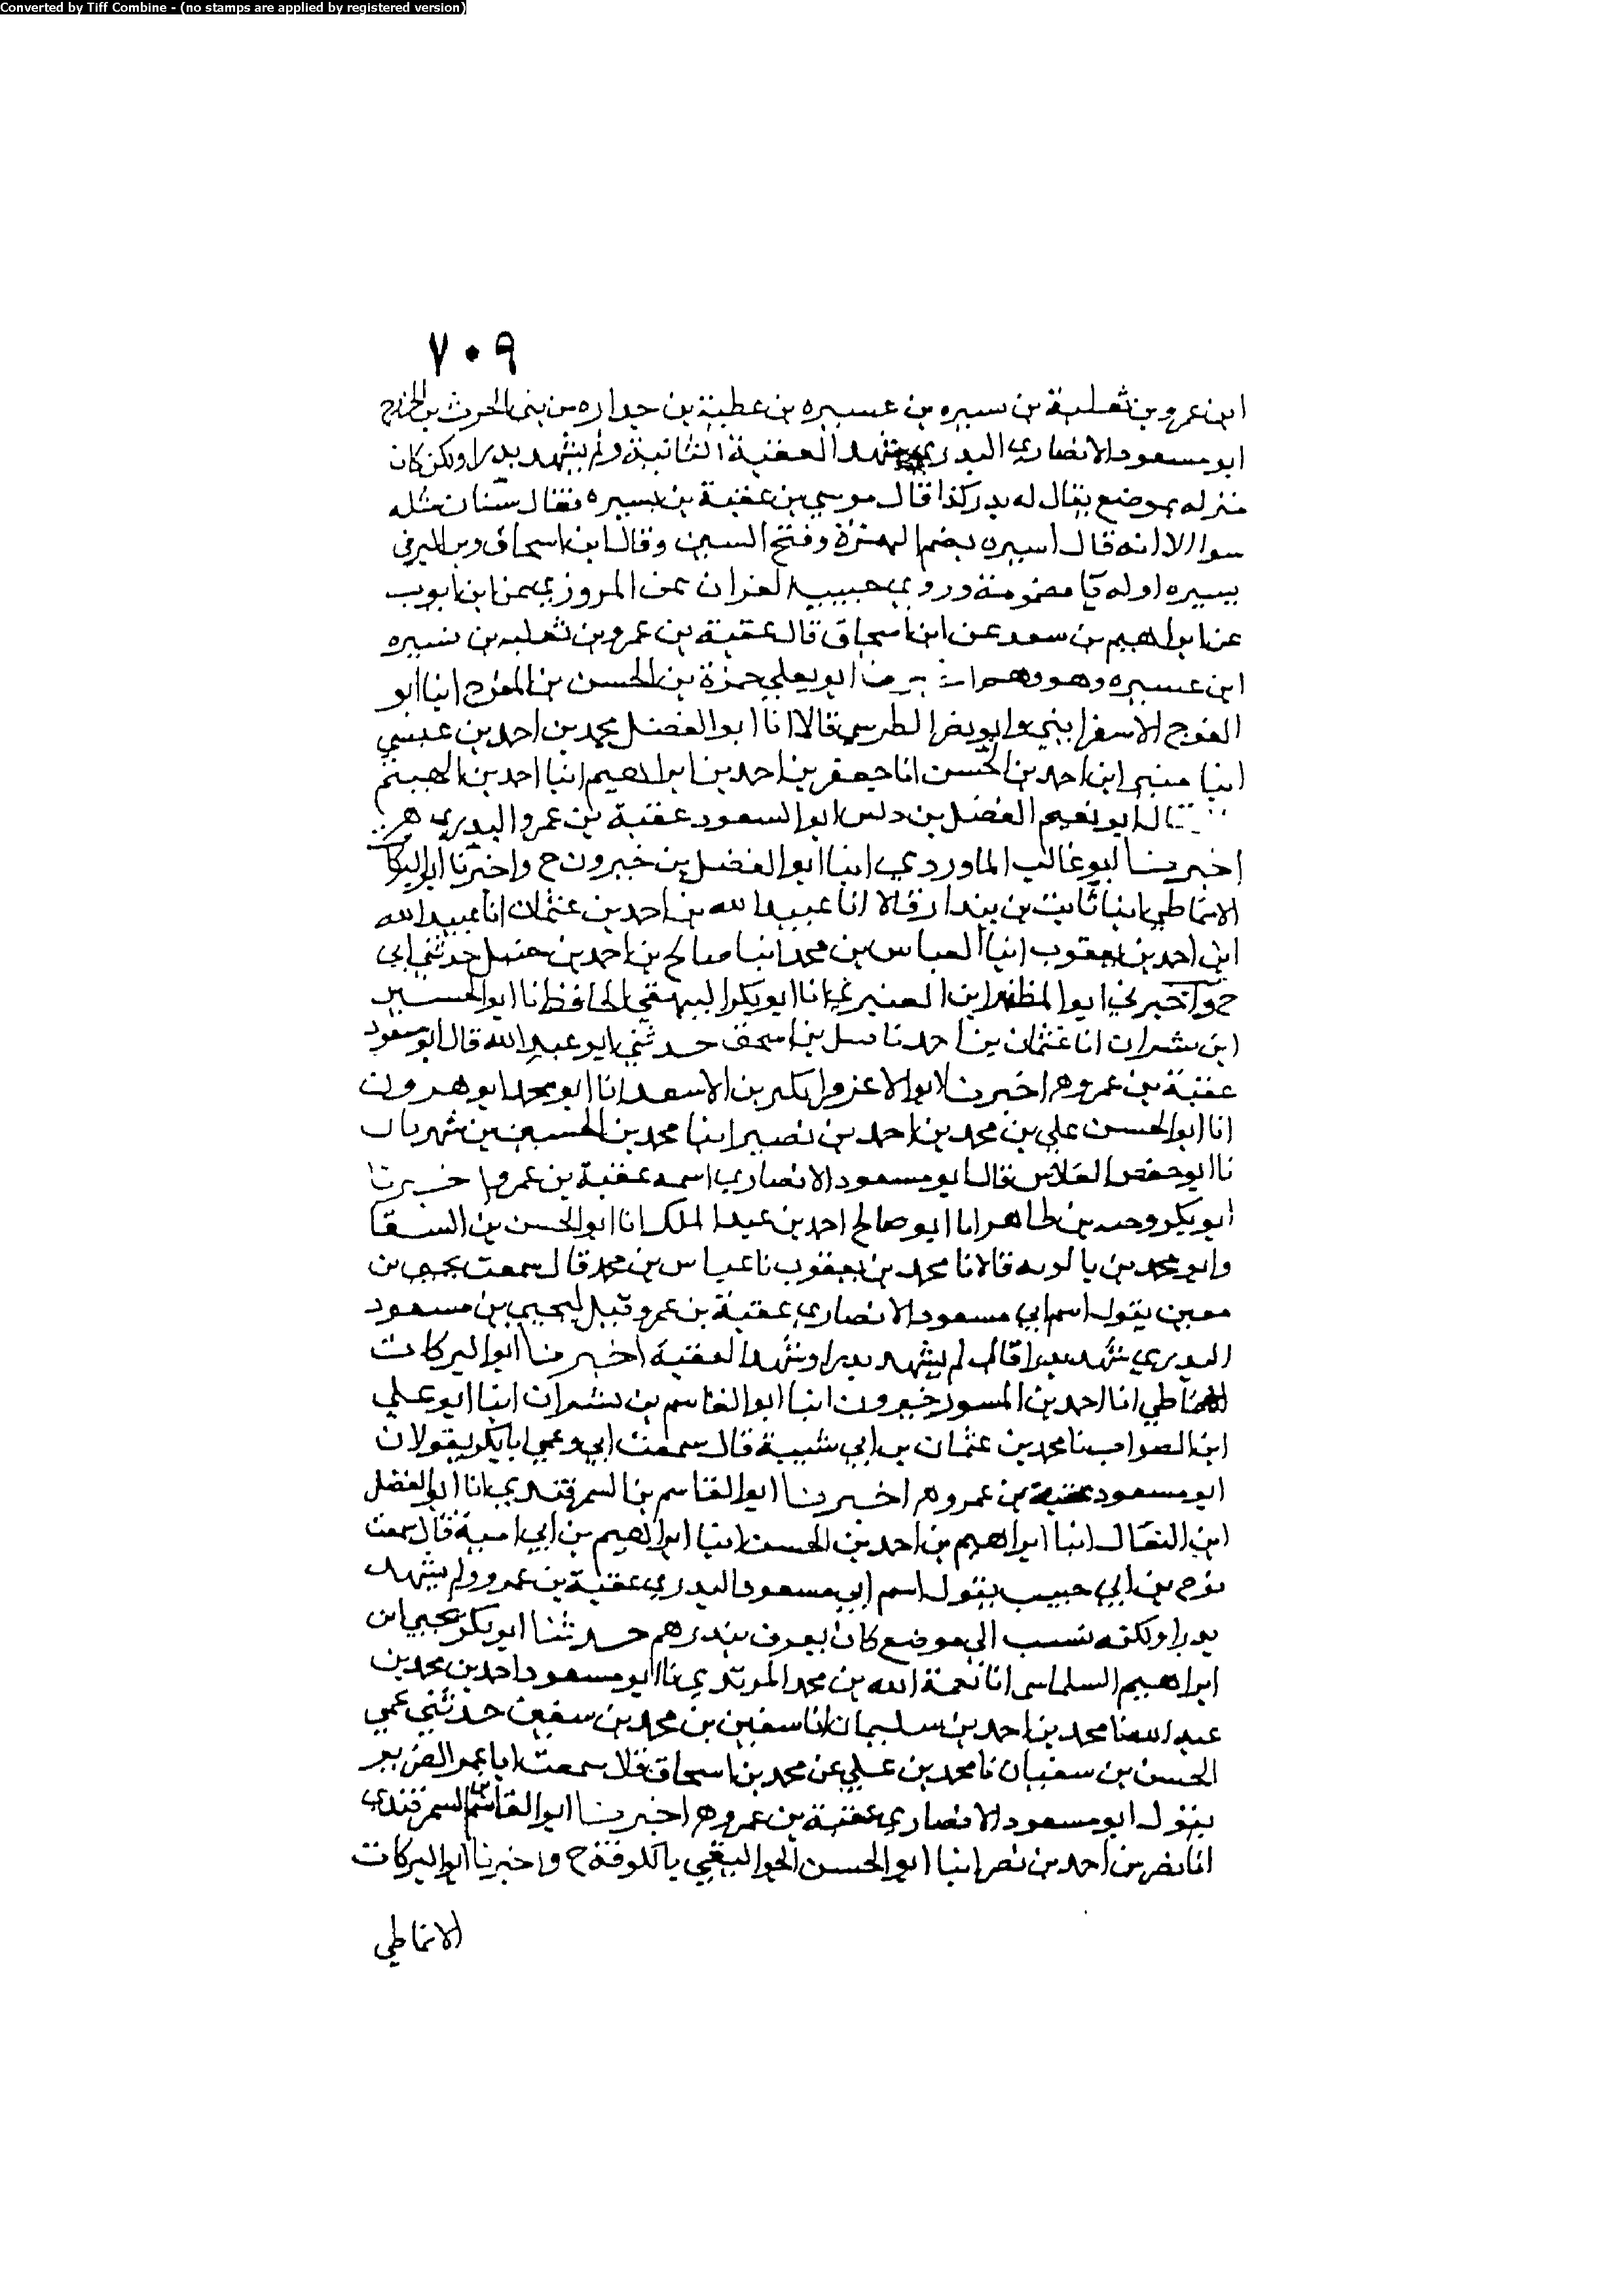 Converted by Tiff Combine - (no stamps are applied by registered version)
٧٠٩
ابن عمرو بن ثعلبة بن سيره بن عسيره بن عطية بن جداره من بنى الحرث بن الخزرج
ابو مسعود الانصاري البدري شهد العقبة الثانية ولم يشهد بدرا ولكن كان
منزله بموضع يقال له بدر كذا قال موسي بن عقبة بن يسيره فقال سنان مثله
سوا الا انه قال اسيره بضم الهمزة وفتح السين وقال ابن اسحاق وبن البرقي
يسيره اوله يا مضمومة وروي حبيب عن المروزي عن ابن ايوب
عن ابراهيم بن سعد عن ابن اسحاق قال عقبة بن عمرو بن ثعلبه بن نسيره
ابن عسيره وهو وهم ابو يعلي حمزة بن الحسن بن المفرج انبا ابو
الفرج الاسفرايني وابو نصر الطرسي قالا انا ابو الفضل محمد بن احمد بن عيسي
انبا منير ابن احمد بن الحسن انا جعفر بن احمد بن ابراهيم انبا احمد بن الهيثم
قال ابو نعيم الفضل بن دكين ابو السعود عقبة بن عمرو البدري هر
اخبرنا ابو غالب الماوردي انبا ابو الفضل بن خيرون ح واخبرنا ابو البركات
الانماطي انبا ثابت بن بندار قالا انا عبيد الله بن احمد بن عثمان انا عبيد الله
ابن احمد بن يعقوب انبا العباس بن محمد انبا صالح بن احمد بن حنبل حدثني ابي
ح واخبرني ابو المظفر ابن القشيري انا ابو بكر البيهقي الحافظ انا ابو الحسين
ابن بشران انا عثمان بن احمد نا حنبل بن اسحق حدثني ابو عبد الله قال ابو مسعود
عقبة بن عمرو هر اخبرنا ابو الاعز قراتكين بن الاسعد انا ابو محمد الجوهرون
انا ابو الحسن علي بن محمد بن احمد بن نصير انبا محمد بن الحسين بن شهريار
نا ابو حفص الفلاس قال ابو مسعود الانصاري اسمه عقبة بن عمرو اخبرنا
ابو بكر وجيه بن طاهر انا ابو صالح احمد بن عبد الملك انا ابو الحسن بن السقا
وابو محمد بن بالويه قالا نا محمد بن يعقوب نا عباس بن محمد قال سمعت يحيي بن
معين يقول اسم ابي مسعود الانصاري عقبة بن عمرو قيل ليحيي بن مسعود
البدري شهد بدرا قال لم يشهد بدرا وشهد العقبة اخبرنا ابو البركات
الانماطي انا احمد بن الحسن خيرون انبا ابو القاسم بن بشران انبا ابو علي
ابن الصواف نا محمد بن عثمان بن ابي شيبة قال سمعت ابي وعمي ابا بكر يقولان
ابو مسعود عقبة بن عمرو هر اخبرنا ابو القاسم بن السمرقندي انا ابو الفضل
ابن البقال انبا ابراهيم بن احمد بن الحسن انبا ابراهيم بن ابي امية قال سمعت
نوح بن ابي حبيب يقول اسم ابي مسعود البدري عقبة بن عمرو ولم يشهد
بدرا ولكنه نسب الي موضع كان يعرف ببدر هم حدثنا ابو بكر يحيي ابن
ابراهيم السلماسي انا نعمة الله بن محمد المرتدي نا ابو مسعود احمد بن محمد بن
عبد الله نا محمد بن احمد بن سليمان انا سفين بن محمد بن سفين حدثني عمي
الحسن بن سفيان نا محمد بن علي عن محمد بن اسحاق قال سمعت ابا عمر الضرير
يقول ابو مسعود الانصاري عقبة بن عمرو هر اخبرنا ابو القاسم بن السمرقندي
انا نصر بن احمد بن نصر انبا ابو الحسن الجواليقي بالكوفة ح واخبرنا ابو البركات
الانماطي